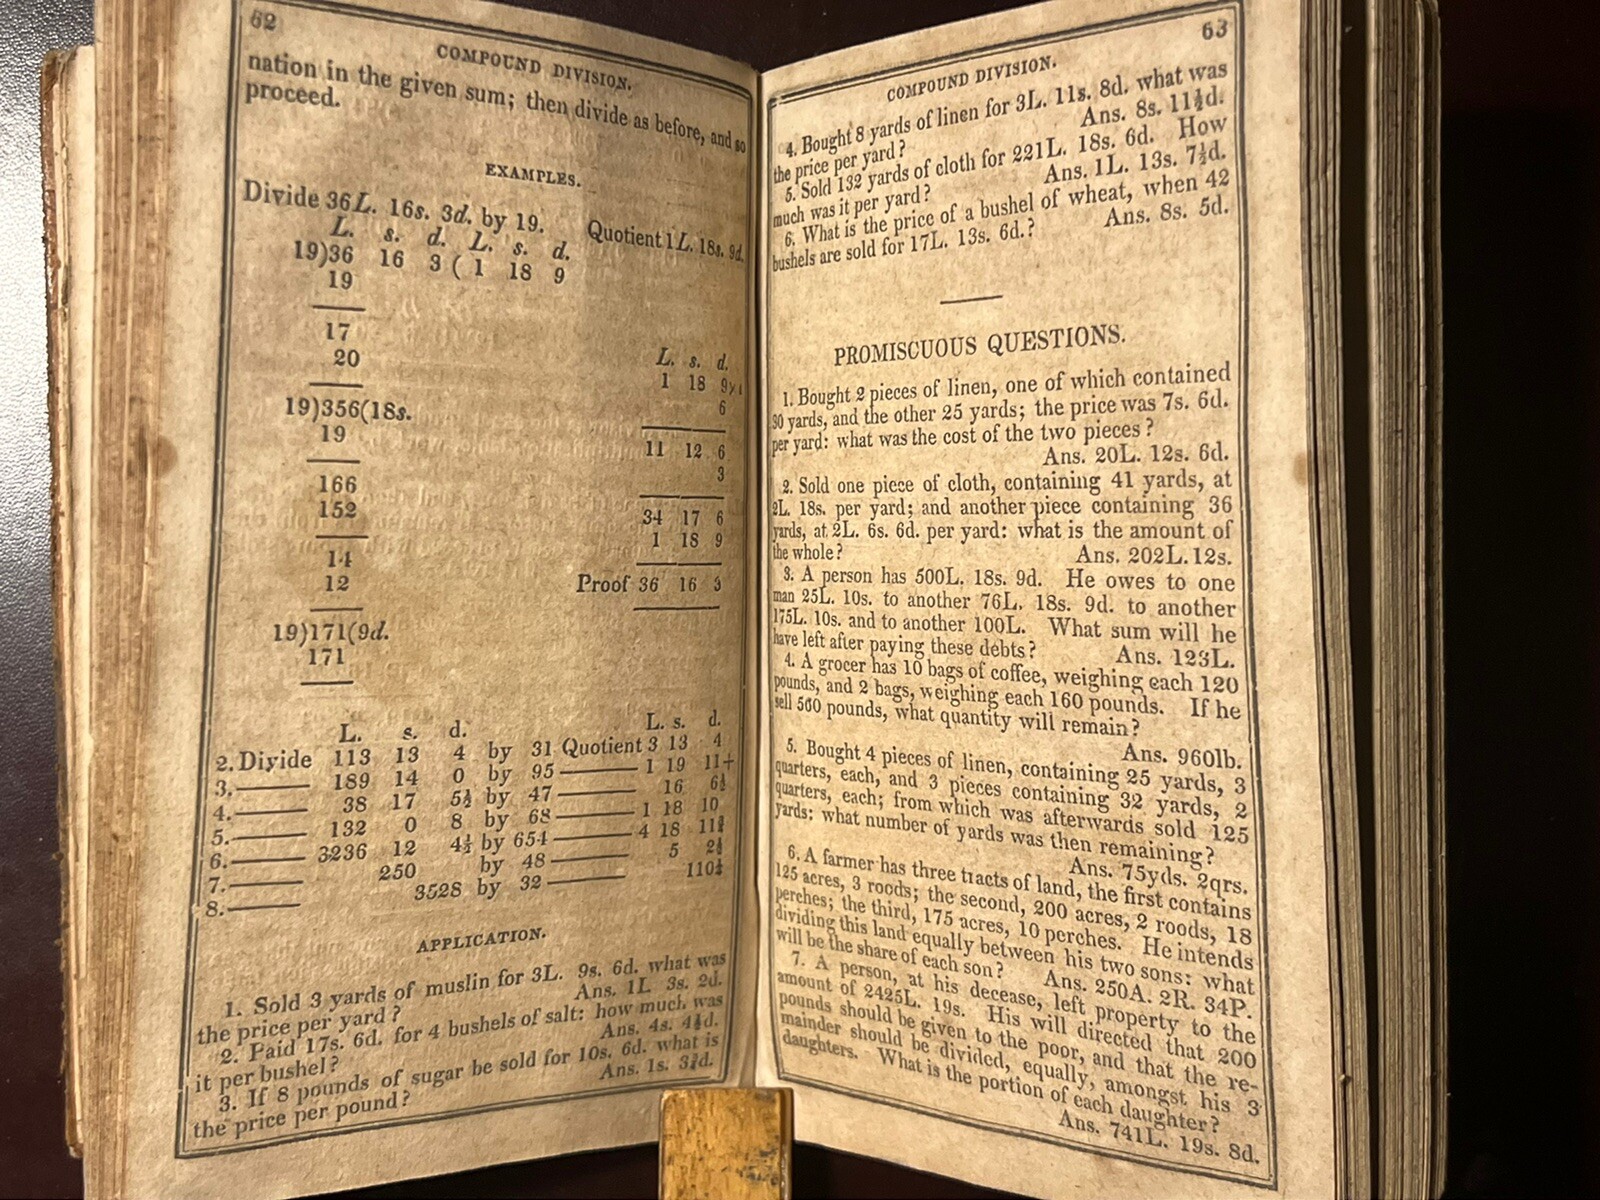 62
COMPOUND DIVISION.
nation in the given sum; then divide as before, and so
proceed.
EXAMPLES.
Divide 36L. 16s. 3d. by 19. Quotient 1L. 18s. 9d.
L. s. d. L. s. d.
19)36 16 3 ( 1 18 9
19
17
20
19)356(18s.
19
166
152
14
12
19)171(9d.
171
L. s. d.
1 18 9
6
11 12 6
3
34 17 6
1 18 9
Proof 36 16 3
L. s. d. L. s. d.
2. Divide 113 13 4 by 31 Quotient 3 13 4
3. 189 14 0 by 95 1 19 11+
4. 38 17 5½ by 47 16 6½
5. 132 0 8 by 68 1 18 10
6. 3236 12 4½ by 654 4 18 11¾
7. 250 by 48 5 2½
8. 3528 by 32 110¼
APPLICATION.
1. Sold 3 yards of muslin for 3L. 9s. 6d. what was
the price per yard? Ans. 1L 3s. 2d.
2. Paid 17s. 6d. for 4 bushels of salt: how much was
it per bushel? Ans. 4s. 4½d.
3. If 8 pounds of sugar be sold for 10s. 6d. what is
the price per pound? Ans. 1s. 3¾d.
63
COMPOUND DIVISION.
4. Bought 8 yards of linen for 3L. 11s. 8d. what was
the price per yard? Ans. 8s. 11½d.
5. Sold 132 yards of cloth for 221L. 18s. 6d. How
much was it per yard? Ans. 1L. 13s. 7½d.
6. What is the price of a bushel of wheat, when 42
bushels are sold for 17L. 13s. 6d.? Ans. 8s. 5d.
PROMISCUOUS QUESTIONS.
1. Bought 2 pieces of linen, one of which contained
30 yards, and the other 25 yards; the price was 7s. 6d.
per yard: what was the cost of the two pieces?
Ans. 20L. 12s. 6d.
2. Sold one piece of cloth, containing 41 yards, at
2L. 18s. per yard; and another piece containing 36
yards, at 2L. 6s. 6d. per yard: what is the amount of
the whole? Ans. 202L. 12s.
3. A person has 500L. 18s. 9d. He owes to one
man 25L. 10s. to another 76L. 18s. 9d. to another
175L. 10s. and to another 100L. What sum will he
have left after paying these debts? Ans. 123L.
4. A grocer has 10 bags of coffee, weighing each 120
pounds, and 2 bags, weighing each 160 pounds. If he
sell 560 pounds, what quantity will remain?
Ans. 960lb.
5. Bought 4 pieces of linen, containing 25 yards, 3
quarters, each, and 3 pieces containing 32 yards, 2
quarters, each; from which was afterwards sold 125
yards: what number of yards was then remaining?
Ans. 75yds. 2qrs.
6. A farmer has three tracts of land, the first contains
125 acres, 3 roods; the second, 200 acres, 2 roods, 18
perches; the third, 175 acres, 10 perches. He intends
dividing this land equally between his two sons: what
will be the share of each son? Ans. 250A. 2R. 34P.
7. A person, at his decease, left property to the
amount of 2425L. 19s. His will directed that 200
pounds should be given to the poor, and that the re-
mainder should be divided, equally, amongst his 3
daughters. What is the portion of each daughter?
Ans. 741L. 19s. 8d.